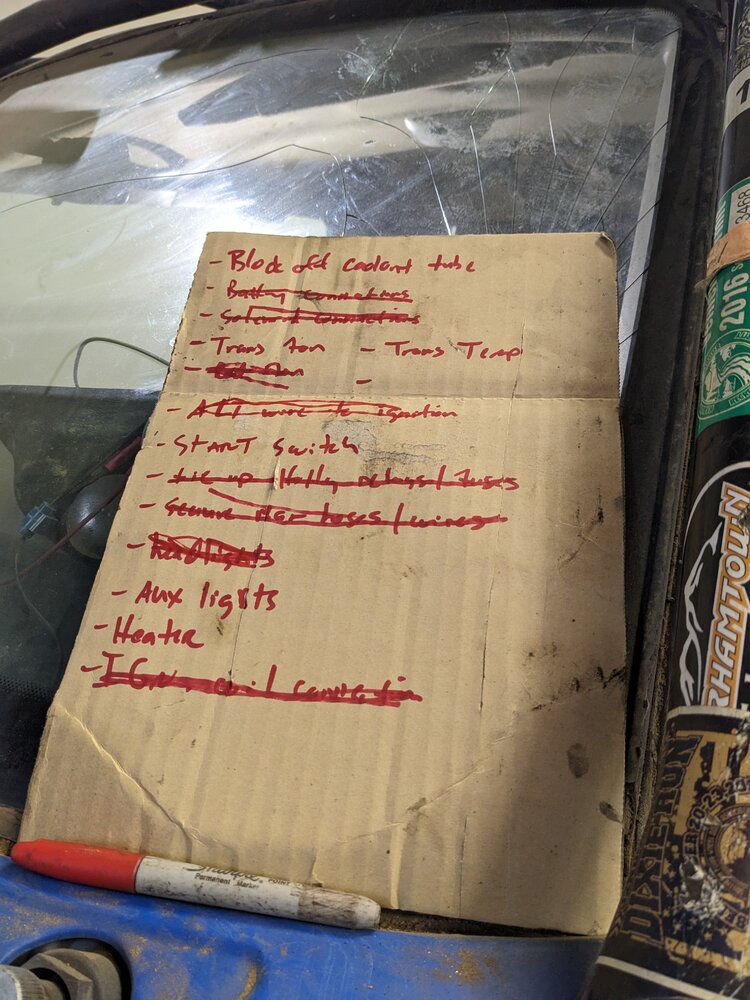 - Block off coolant tube
- Battery connections
- Solenoid connections
- Trans fan - Trans Temp
- Fan
-
- wire to ignition
- START Switch
- tie up Holly relays / fuses
- secure fuses / wires
- Headlights
- Aux lights
- Heater
- IGN. coil connection
Sharpie
Permanent Marker
POINT
1
3468
2016
RHAMTOWN
DIXIE RUN
20-23, 20